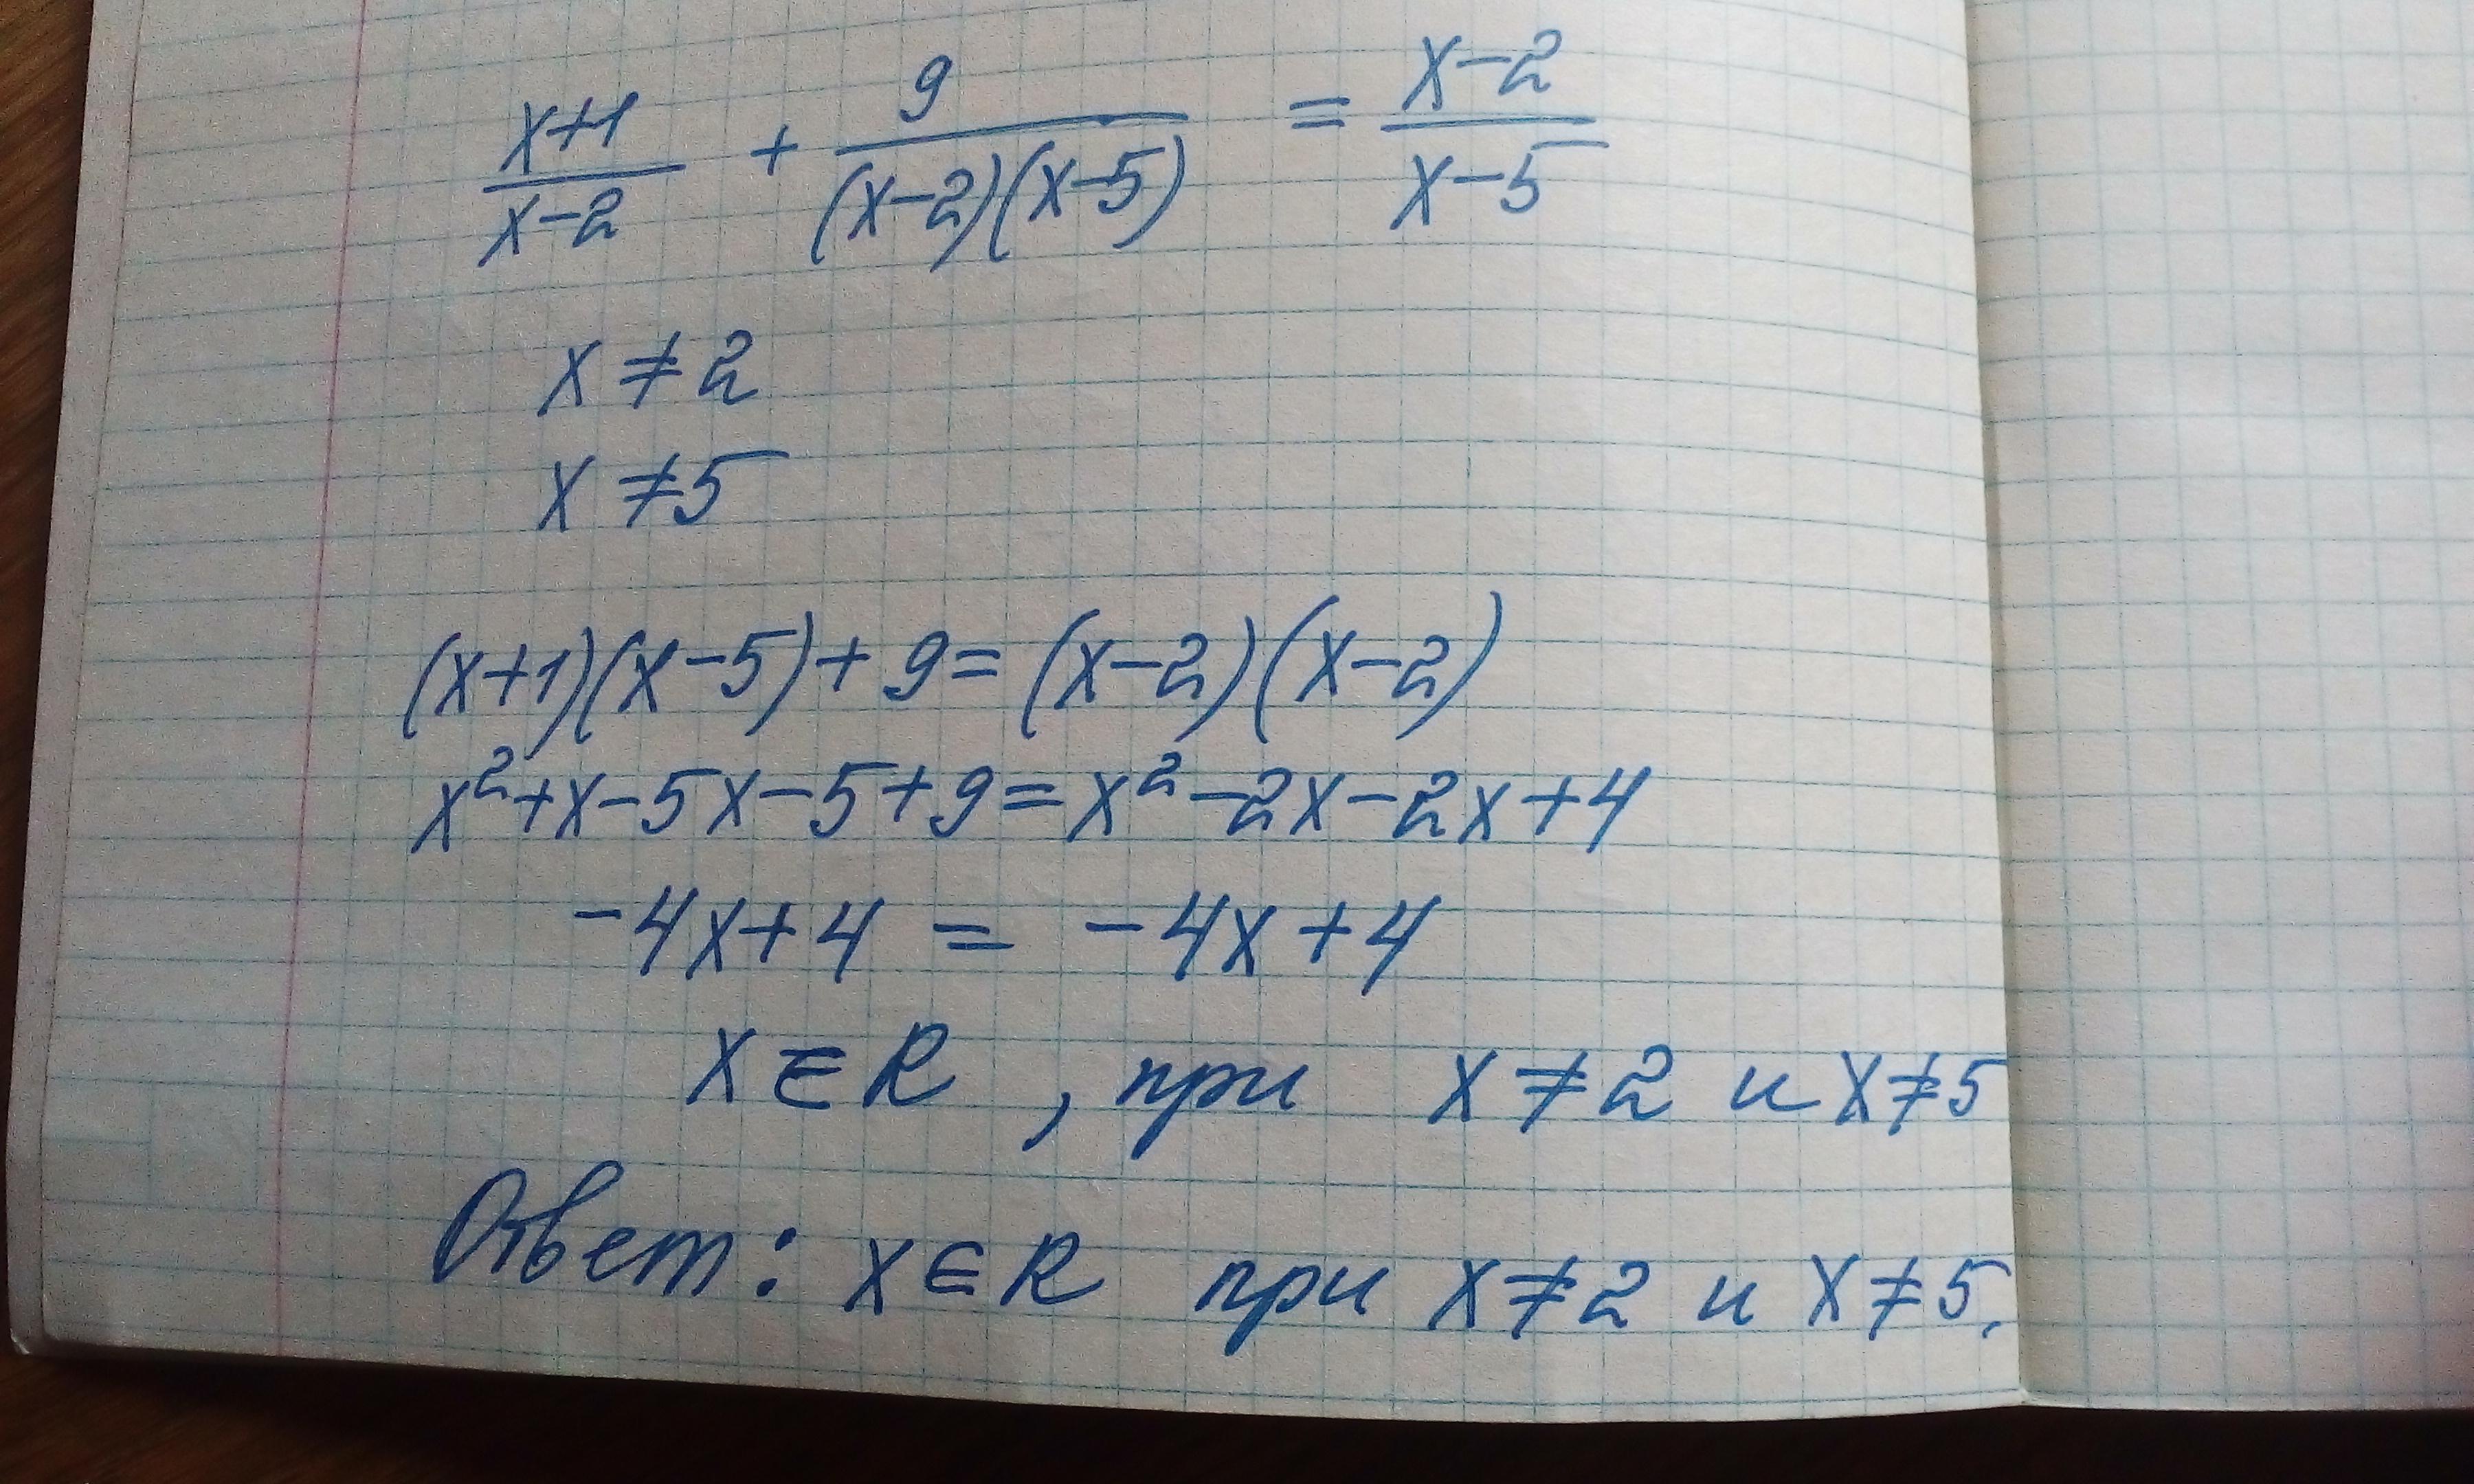 (x+1)/(x-2) + 9/((x-2)(x-5)) = (x-2)/(x-5)
x ≠ 2
x ≠ 5
(x+1)(x-5)+9=(x-2)(x-2)
x²+x-5x-5+9=x²-2x-2x+4
-4x+4 = -4x+4
x∈R, при x≠2 и x≠5
Ответ: x∈R при x≠2 и x≠5.